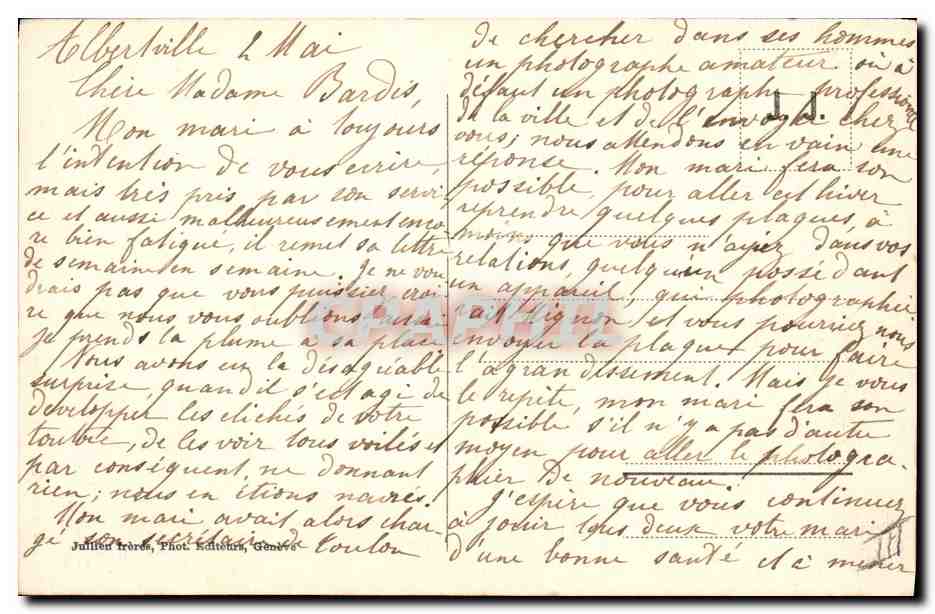 Albertville 2 Mai
Chère Madame Bardis,
Mon mari a toujours
l'intention de vous ecrire,
mais très pris par son servi-
ce et aussi malheureusement enco
re bien fatigué, il remet sa lettre
de semaine en semaine. Je ne vou
drais pas que vous puissiez croi
re que nous vous oublions aussi
je prends la plume à sa place
Nous avons eu la désagréable
surprise, quand il s'est agi de
developper les clichés de votre
de les voir tous voilés et
par conséquent ne donnant
rien; nous en étions navrés!
Mon mari avait alors char-
gé son secrétaire de Toulon
Jullien frères, Phot. Editeurs, Genève
de chercher dans ses hommes
un photographe amateur ou à
défaut un photographe professionnel
de la ville et de l'envoyer chez
vous; nous attendons en vain une
réponse. Mon mari fera son
possible, pour aller cet hiver
reprendre quelques plaques, à
moins que vous n'ayez dans vos
relations, quelqu'un possédant
un appareil, qui photographie
rait et vous pourriez nous
envoyer la plaque pour faire
l'agrandissement. Mais je vous
le repète, mon mari fera son
possible s'il n'y a pas d'autre
moyen pour aller le photogra-
phier de nouveau.
J'espère que vous continuez
à jouir tous deux votre mari
d'une bonne santé et à mener
J.J.
CPAPHIL